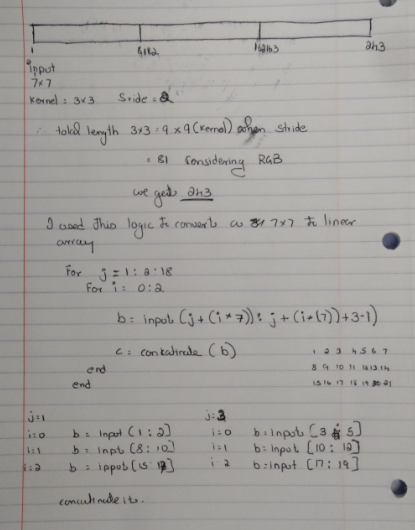 1 81 82 162 163 243
input
7x7
Kernel = 3x3 Stride = 2
∴ total length 3x3 = 9 x 9 (Kernel) when stride
= 81 Considering RGB
we get 243
I used this logic to convert a 7x7 to linear
array
For j = 1 : 2 : 18
For i = 0:2
b = input (j + (i * 7)) : j + (i * (7)) + 3 - 1)
c = concatinate (b)
end
end
1 2 3 4 5 6 7
8 9 10 11 12 13 14
15 16 17 18 19 20 21
j=1 j=3
i=0 b = Input [1 : 2] i=0 b = Input [3 : 5]
i=1 b = Input [8 : 10] i=1 b = Input [10 : 12]
i=2 b = input [15 : 17] i=2 b = Input [17 : 19]
concatinate it.